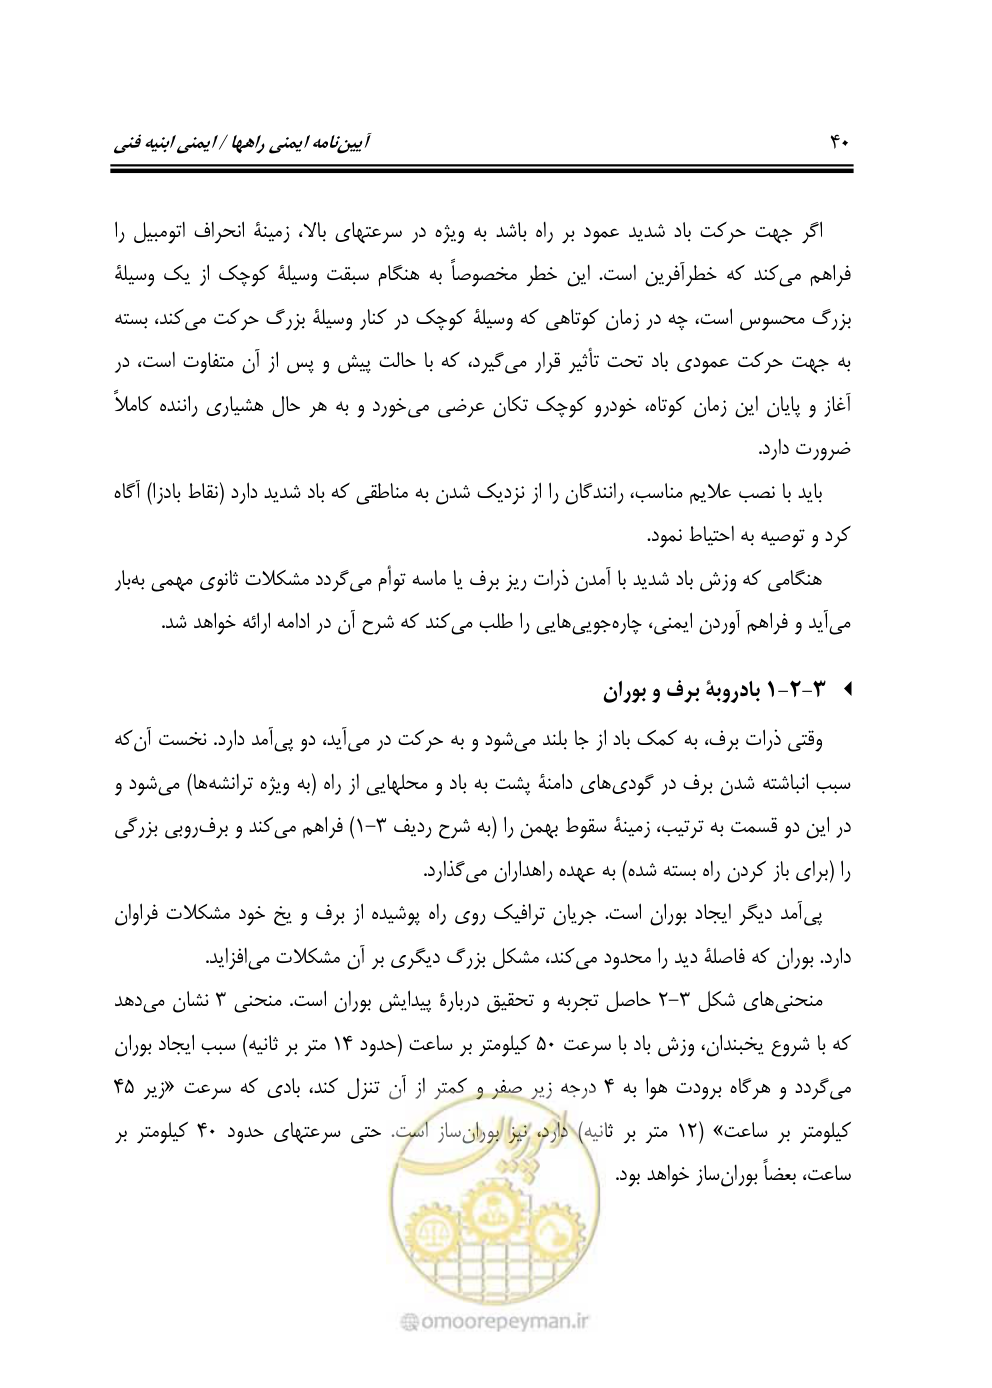 ۴۰ آیین‌نامه ایمنی راهها / ایمنی ابنیه فنی
اگر جهت حرکت باد شدید عمود بر راه باشد به ویژه در سرعتهای بالا، زمینهٔ انحراف اتومبیل را
فراهم می‌کند که خطرآفرین است. این خطر مخصوصاً به هنگام سبقت وسیلهٔ کوچک از یک وسیلهٔ
بزرگ محسوس است، چه در زمان کوتاهی که وسیلهٔ کوچک در کنار وسیلهٔ بزرگ حرکت می‌کند، بسته
به جهت حرکت عمودی باد تحت تأثیر قرار می‌گیرد، که با حالت پیش و پس از آن متفاوت است، در
آغاز و پایان این زمان کوتاه، خودرو کوچک تکان عرضی می‌خورد و به هر حال هشیاری راننده کاملاً
ضرورت دارد.
باید با نصب علایم مناسب، رانندگان را از نزدیک شدن به مناطقی که باد شدید دارد (نقاط بادزا) آگاه
کرد و توصیه به احتیاط نمود.
هنگامی که وزش باد شدید با آمدن ذرات ریز برف یا ماسه توأم می‌گردد مشکلات ثانوی مهمی به‌بار
می‌آید و فراهم آوردن ایمنی، چاره‌جویی‌هایی را طلب می‌کند که شرح آن در ادامه ارائه خواهد شد.
۳-۲-۱ بادروبهٔ برف و بوران
وقتی ذرات برف، به کمک باد از جا بلند می‌شود و به حرکت در می‌آید، دو پی‌آمد دارد. نخست آن‌که
سبب انباشته شدن برف در گودی‌های دامنهٔ پشت به باد و محلهایی از راه (به ویژه ترانشه‌ها) می‌شود و
در این دو قسمت به ترتیب، زمینهٔ سقوط بهمن را (به شرح ردیف ۳-۱) فراهم می‌کند و برف‌روبی بزرگی
را (برای باز کردن راه بسته شده) به عهده راهداران می‌گذارد.
پی‌آمد دیگر ایجاد بوران است. جریان ترافیک روی راه پوشیده از برف و یخ خود مشکلات فراوان
دارد. بوران که فاصلهٔ دید را محدود می‌کند، مشکل بزرگ دیگری بر آن مشکلات می‌افزاید.
منحنی‌های شکل ۳-۲ حاصل تجربه و تحقیق دربارهٔ پیدایش بوران است. منحنی ۳ نشان می‌دهد
که با شروع یخبندان، وزش باد با سرعت ۵۰ کیلومتر بر ساعت (حدود ۱۴ متر بر ثانیه) سبب ایجاد بوران
می‌گردد و هرگاه برودت هوا به ۴ درجه زیر صفر و کمتر از آن تنزل کند، بادی که سرعت «زیر ۴۵
کیلومتر بر ساعت» (۱۲ متر بر ثانیه) دارد، نیز بوران‌ساز است. حتی سرعتهای حدود ۴۰ کیلومتر بر
ساعت، بعضاً بوران‌ساز خواهد بود.
امور پیمان
omoorepeyman.ir